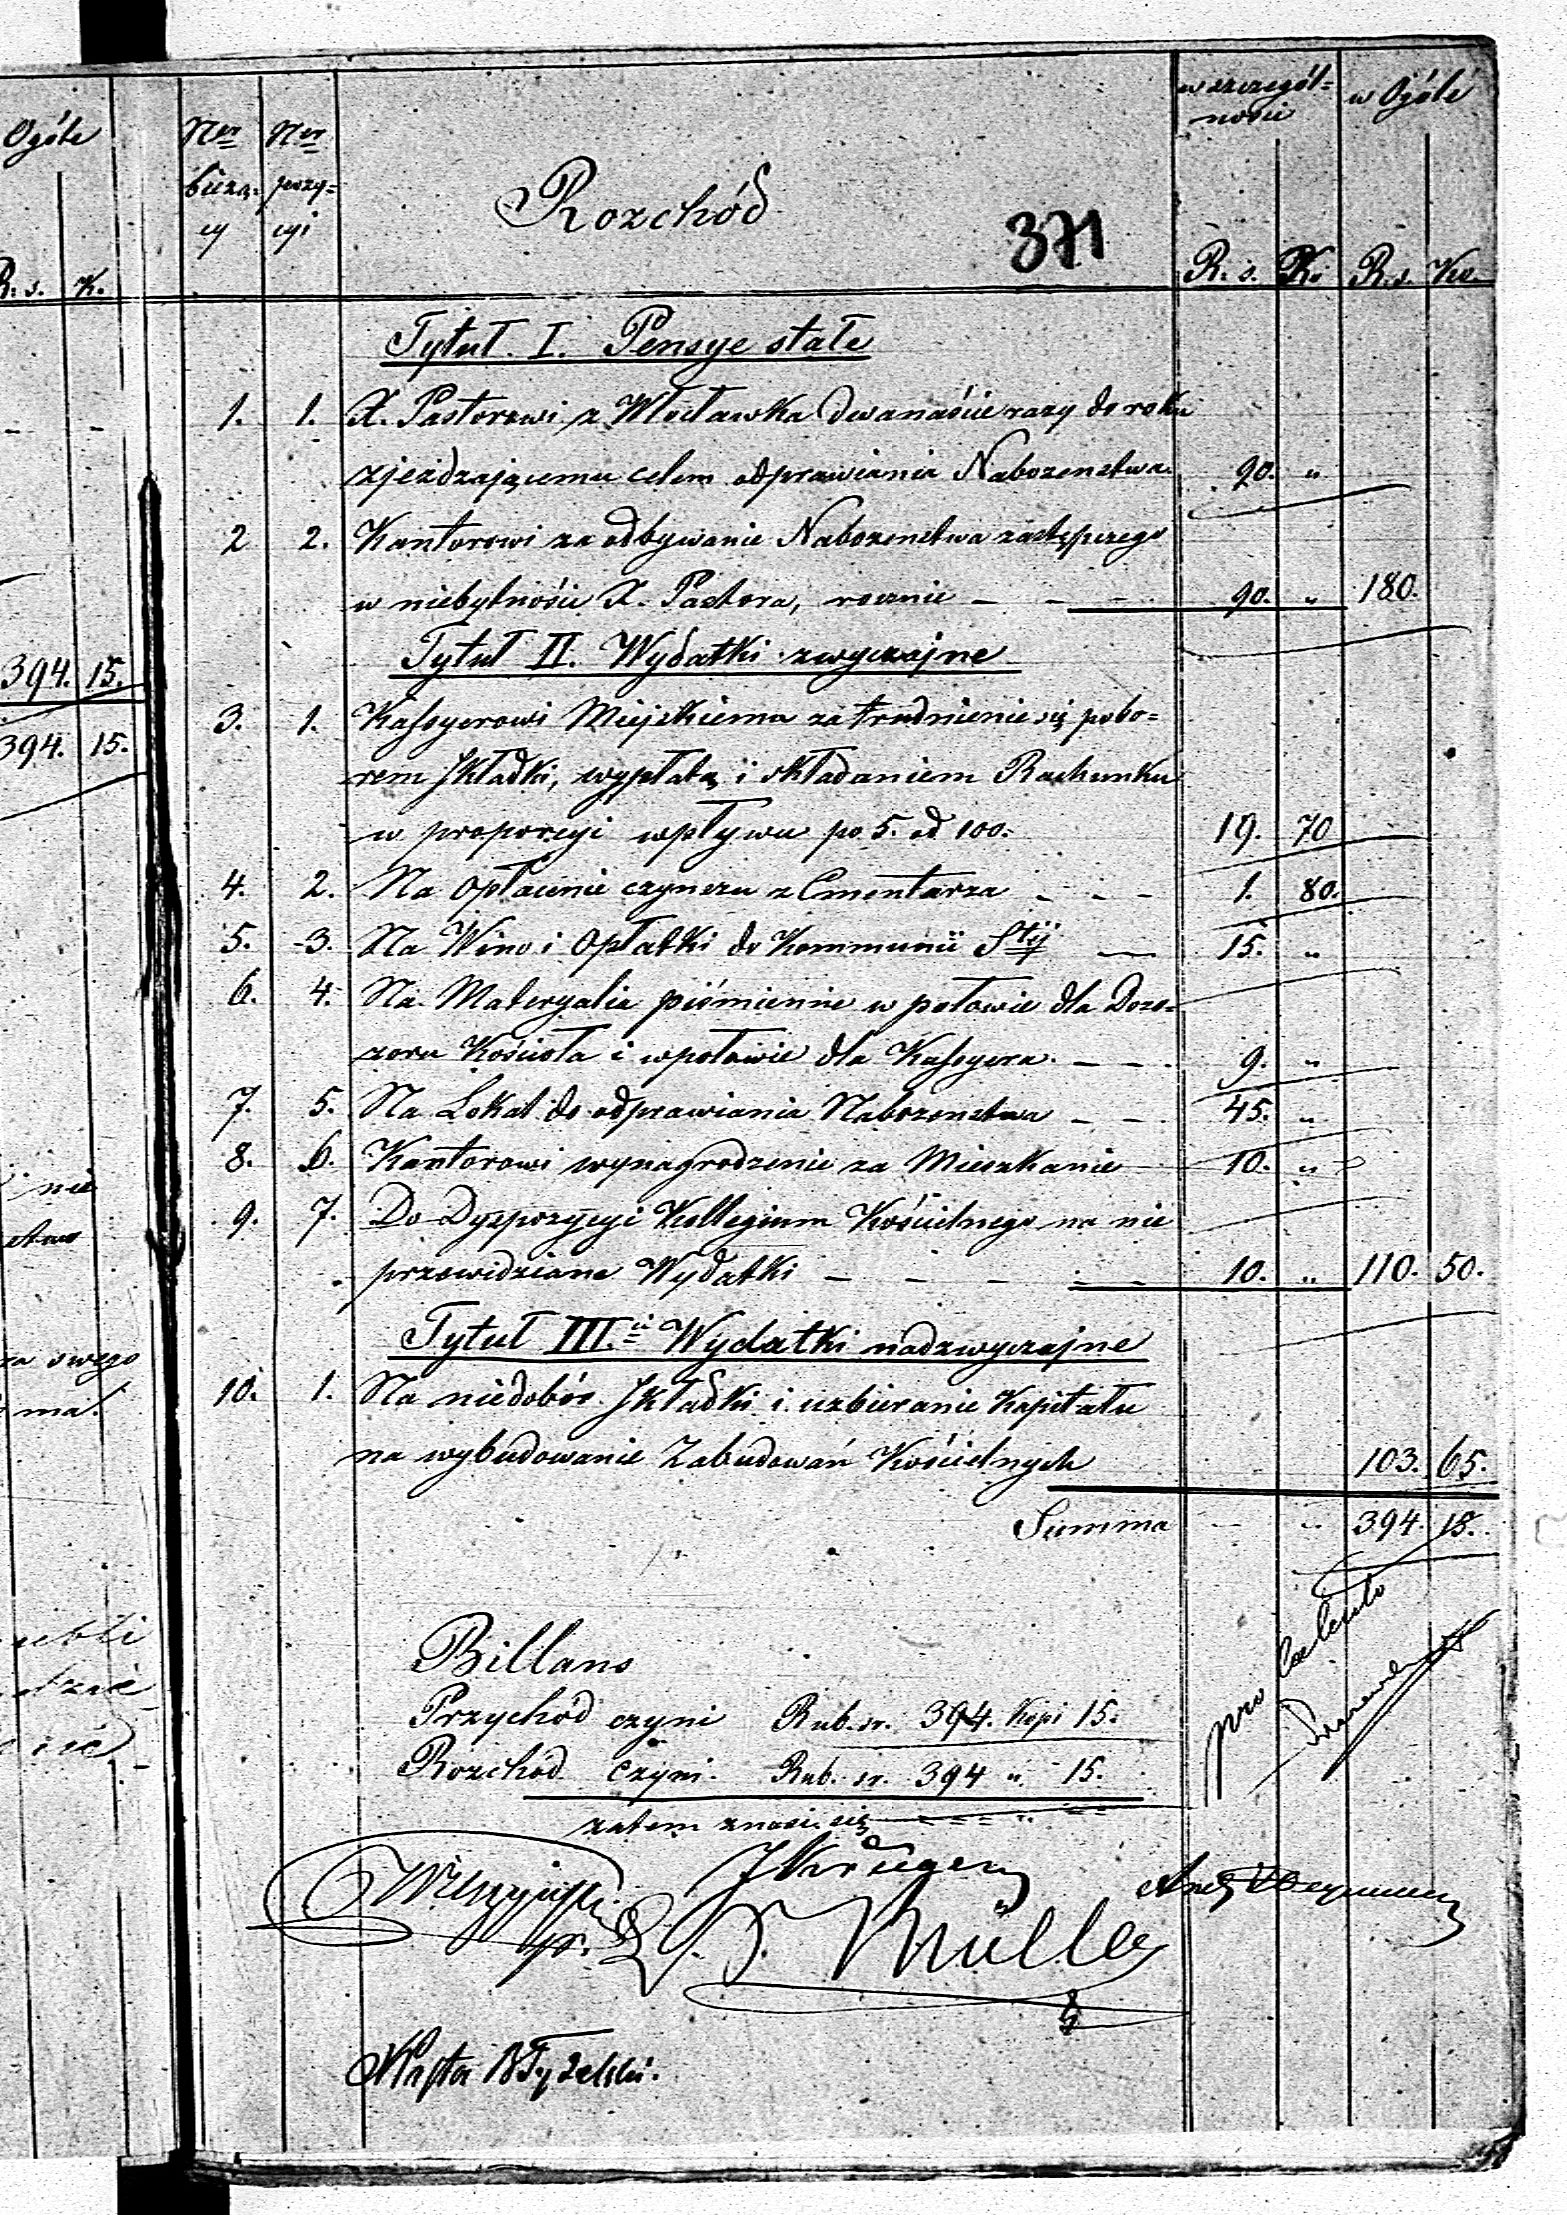 Ogóle
R. s. K.
394. 15.
394. 15.
nie
za swego
ma.
Ner bieżą- cy
Ner pozy= cyi
Rozchód
371
w szczegól=
ności
w Ogóle
R. s. K. R. s. Ko.
Tytuł. I. Pensye stałe
1. 1. X. Pastorowi z Włocławka dwanaście razy do roku
zjeżdzającemu celem odprawiania Nabożenstwa. 90. "
2 2. Kantorowi za odbywanie Nabożenstwa zastępczego
w niebytnośći X. Pastora, rocznie - - - 90. " 180.
Tytuł II. Wydatki zwyczajne
3. 1. Kassyerowi Miejskiemu za trudnienie się pobo=
rem składki, wypłatą i składaniem Rachunku
w proporcyi wpływu po 5. od 100. 19. 70
4. 2. Na opłacenie czynszu z Cmentarza - - - 1. 80.
5. 3. Na Wino i Opłatki do Kommunii Stej — 15. "
6. 4. Na Materyalia piśmienne w połowie dla Dozo=
zoru Kościoła i w połowie dla Kassyera. - - . 9. "
7. 5. Na Lokal do odprawiania Nabożenstwa - - 45. "
8. 6. Kantorowi wynagrodzenie za Mieszkanie 10. "
9. 7. Do Dyspozycyi Kollegium Kościelnego na nie
przewidziane Wydatki - - - - - 10. " 110. 50.
Tytuł III. Wydatki nadzwyczajne
10. 1. Na niedobór Składki i uzbieranie Kapitału
na wybudowanie Zabudowań Kościelnych 103. 65.
Summa - " 394. 15.
Billans
Przychód czyni Rub. sr. 394. Kopi 15.
Rozchód czyni. Rub. sr. 394 " 15.
zatem znosi się - = = "
pro Calculo
J Krüger
Müller